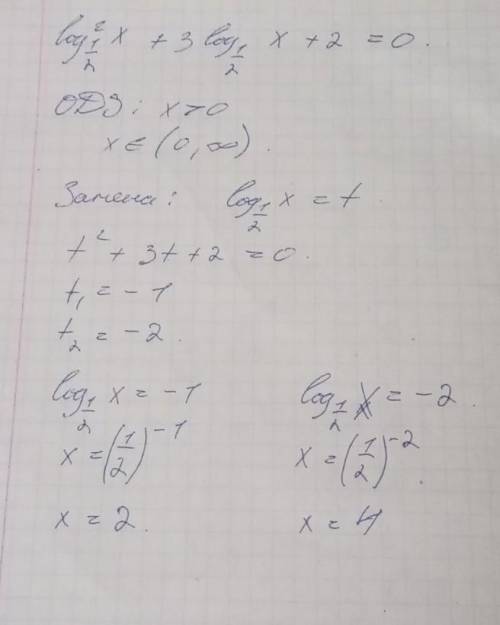 log²_{1/2} x + 3 log_{1/2} x + 2 = 0.
ОДЗ: x > 0
x ∈ (0, ∞).
Замена: log_{1/2} x = t
t² + 3t + 2 = 0.
t₁ = -1
t₂ = -2.
log_{1/2} x = -1 log_{1/2} x = -2.
x = (1/2)^{-1} x = (1/2)^{-2}.
x = 2. x = 4